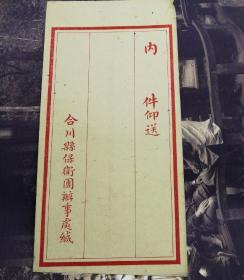 內　件仰送
合川縣保衛團辦事處緘